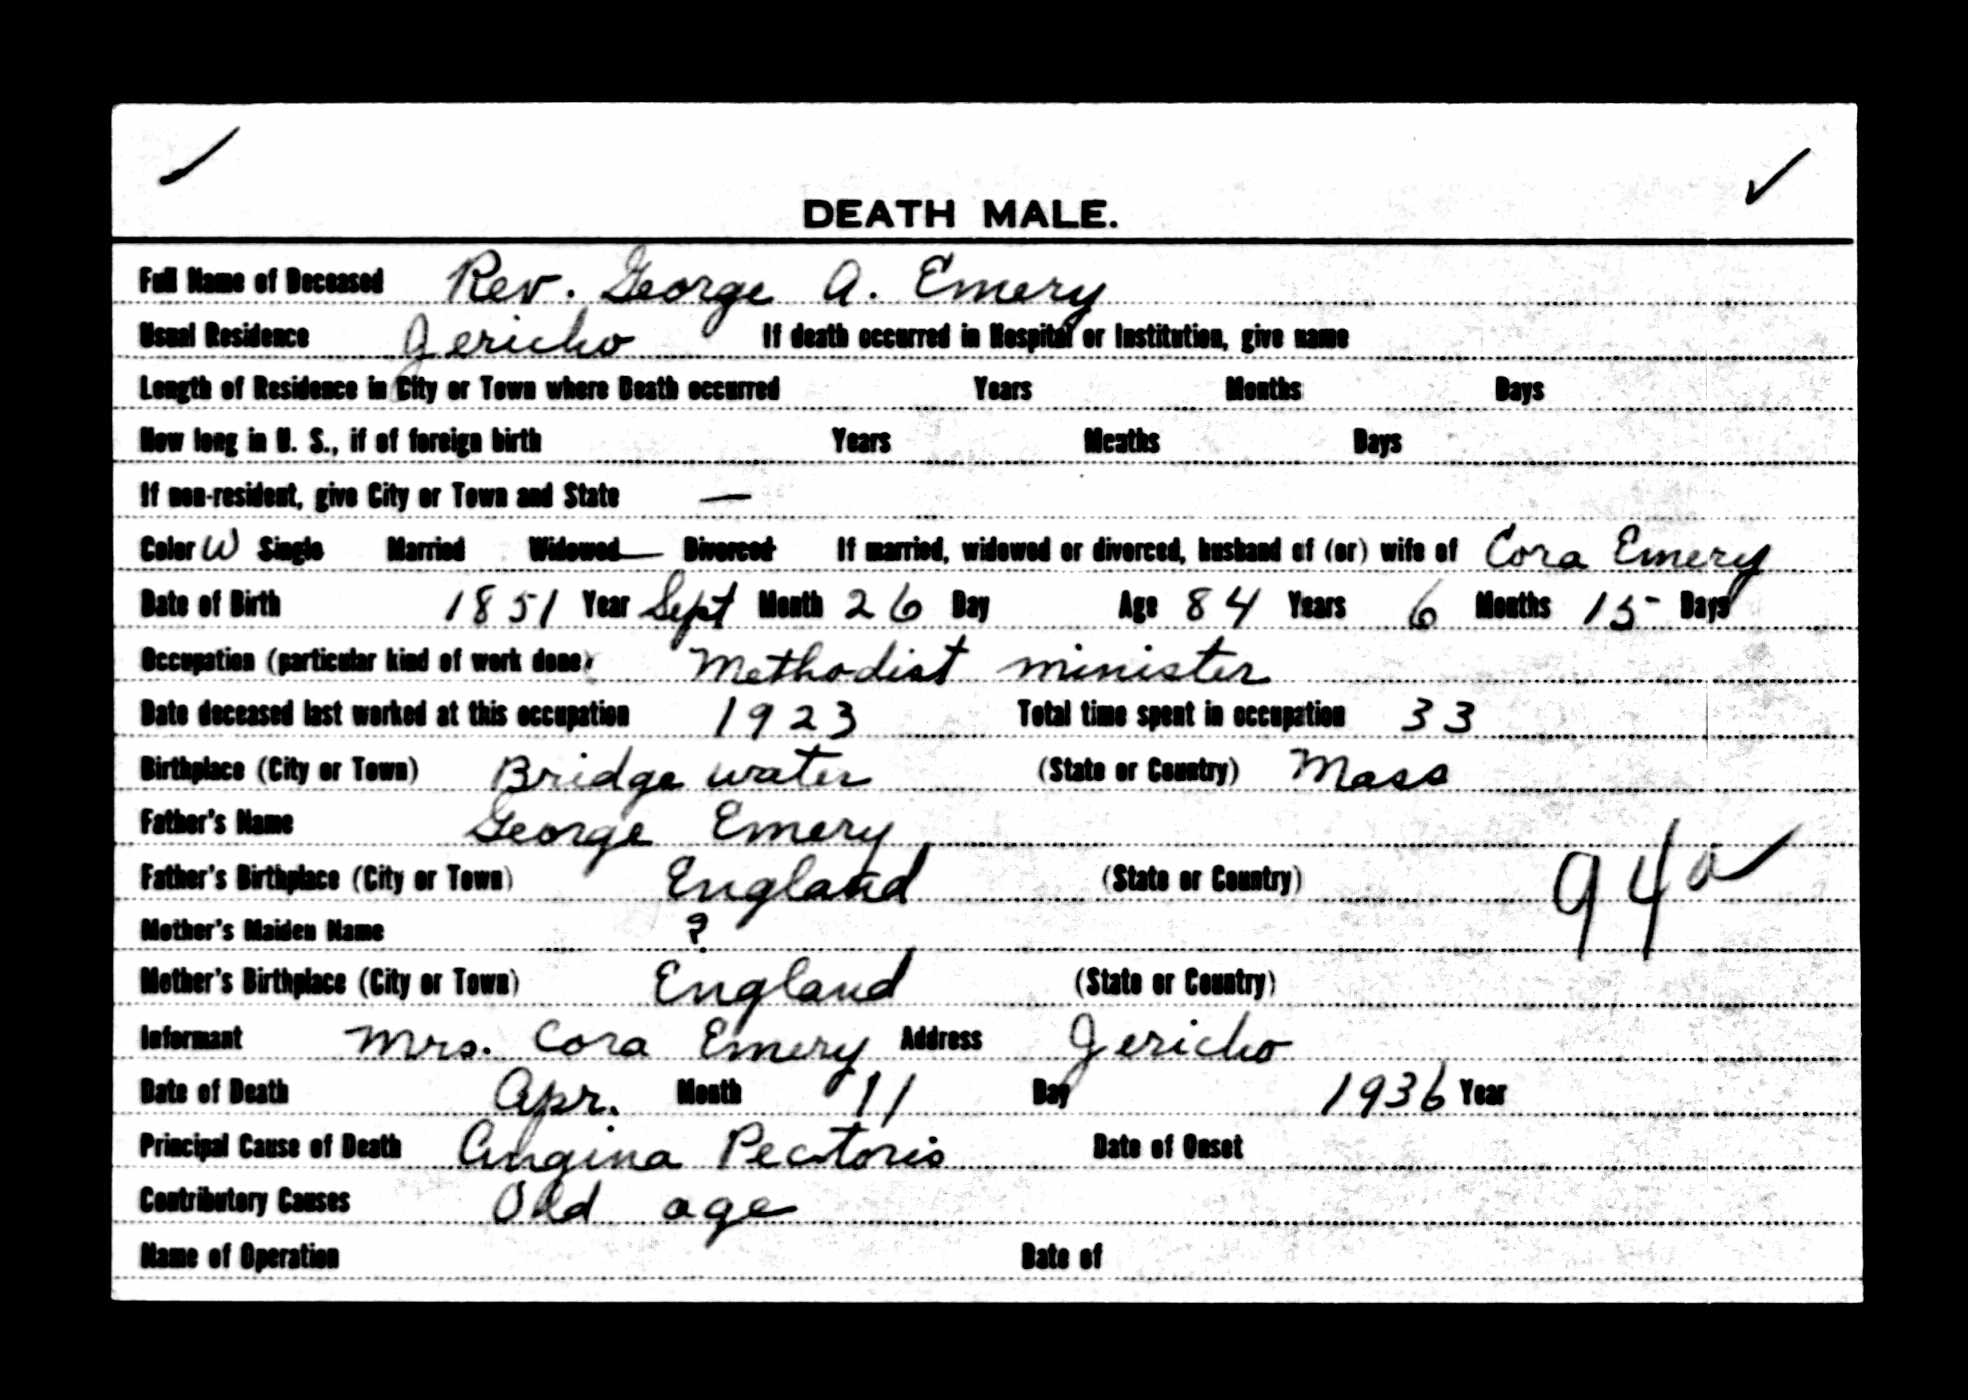 DEATH MALE.
Full Name of Deceased Rev. George A. Emery
Usual Residence Jericho If death occurred in Hospital or Institution, give name
Length of Residence in City or Town where Death occurred Years Months Days
How long in U. S., if of foreign birth Years Months Days
If non-resident, give City or Town and State —
Color W Single Married Widowed Divorced If married, widowed or divorced, husband of (or) wife of Cora Emery
Date of Birth 1851 Year Sept Month 26 Day Age 84 Years 6 Months 15 Days
Occupation (particular kind of work done) Methodist minister
Date deceased last worked at this occupation 1923 Total time spent in occupation 33
Birthplace (City or Town) Bridgewater (State or Country) Mass
Father's Name George Emery
Father's Birthplace (City or Town) England (State or Country) 94a
Mother's Maiden Name ?
Mother's Birthplace (City or Town) England (State or Country)
Informant Mrs. Cora Emery Address Jericho
Date of Death Apr. Month 11 Day 1936 Year
Principal Cause of Death Angina Pectoris Date of Onset
Contributory Causes Old age
Name of Operation Date of